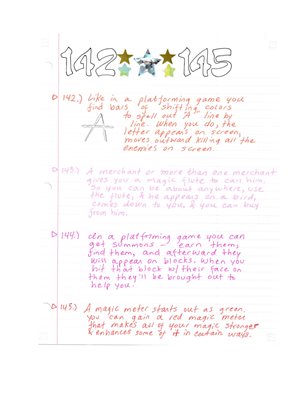 142 145
142.) Like in a platforming game you
find bars of shifting colors
to spell out "A" line by
line. When you do, the
letter appears on screen,
moves outward killing all the
enemies on screen.
A
143.) A merchant or more than one merchant
gives you a magic flute to call him.
So you can be about anywhere, use
the flute, & he appears on a bird,
comes down to you, & you can buy
from him.
144.) In a platforming game you can
get summons – earn them,
find them, and afterward they
will appear on blocks. When you
hit that block w/their face on
them they'll be brought out to
help you.
145.) A magic meter starts out as green.
you can gain a red magic meter
that makes all of your magic stronger
& enhances some of it in certain ways.